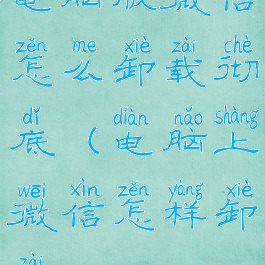 电脑版微信
zěn me xiè zài chè
怎么卸载彻
dǐ diàn nǎo shàng
底（电脑上
wēi xìn zěn yàng xiè
微信怎样卸
zài